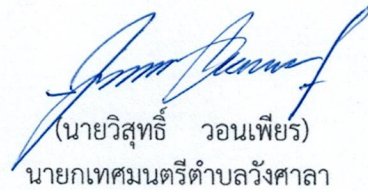 (นายวิสุทธิ์ วอนเพียร)
นายกเทศมนตรีตำบลวังศาลา